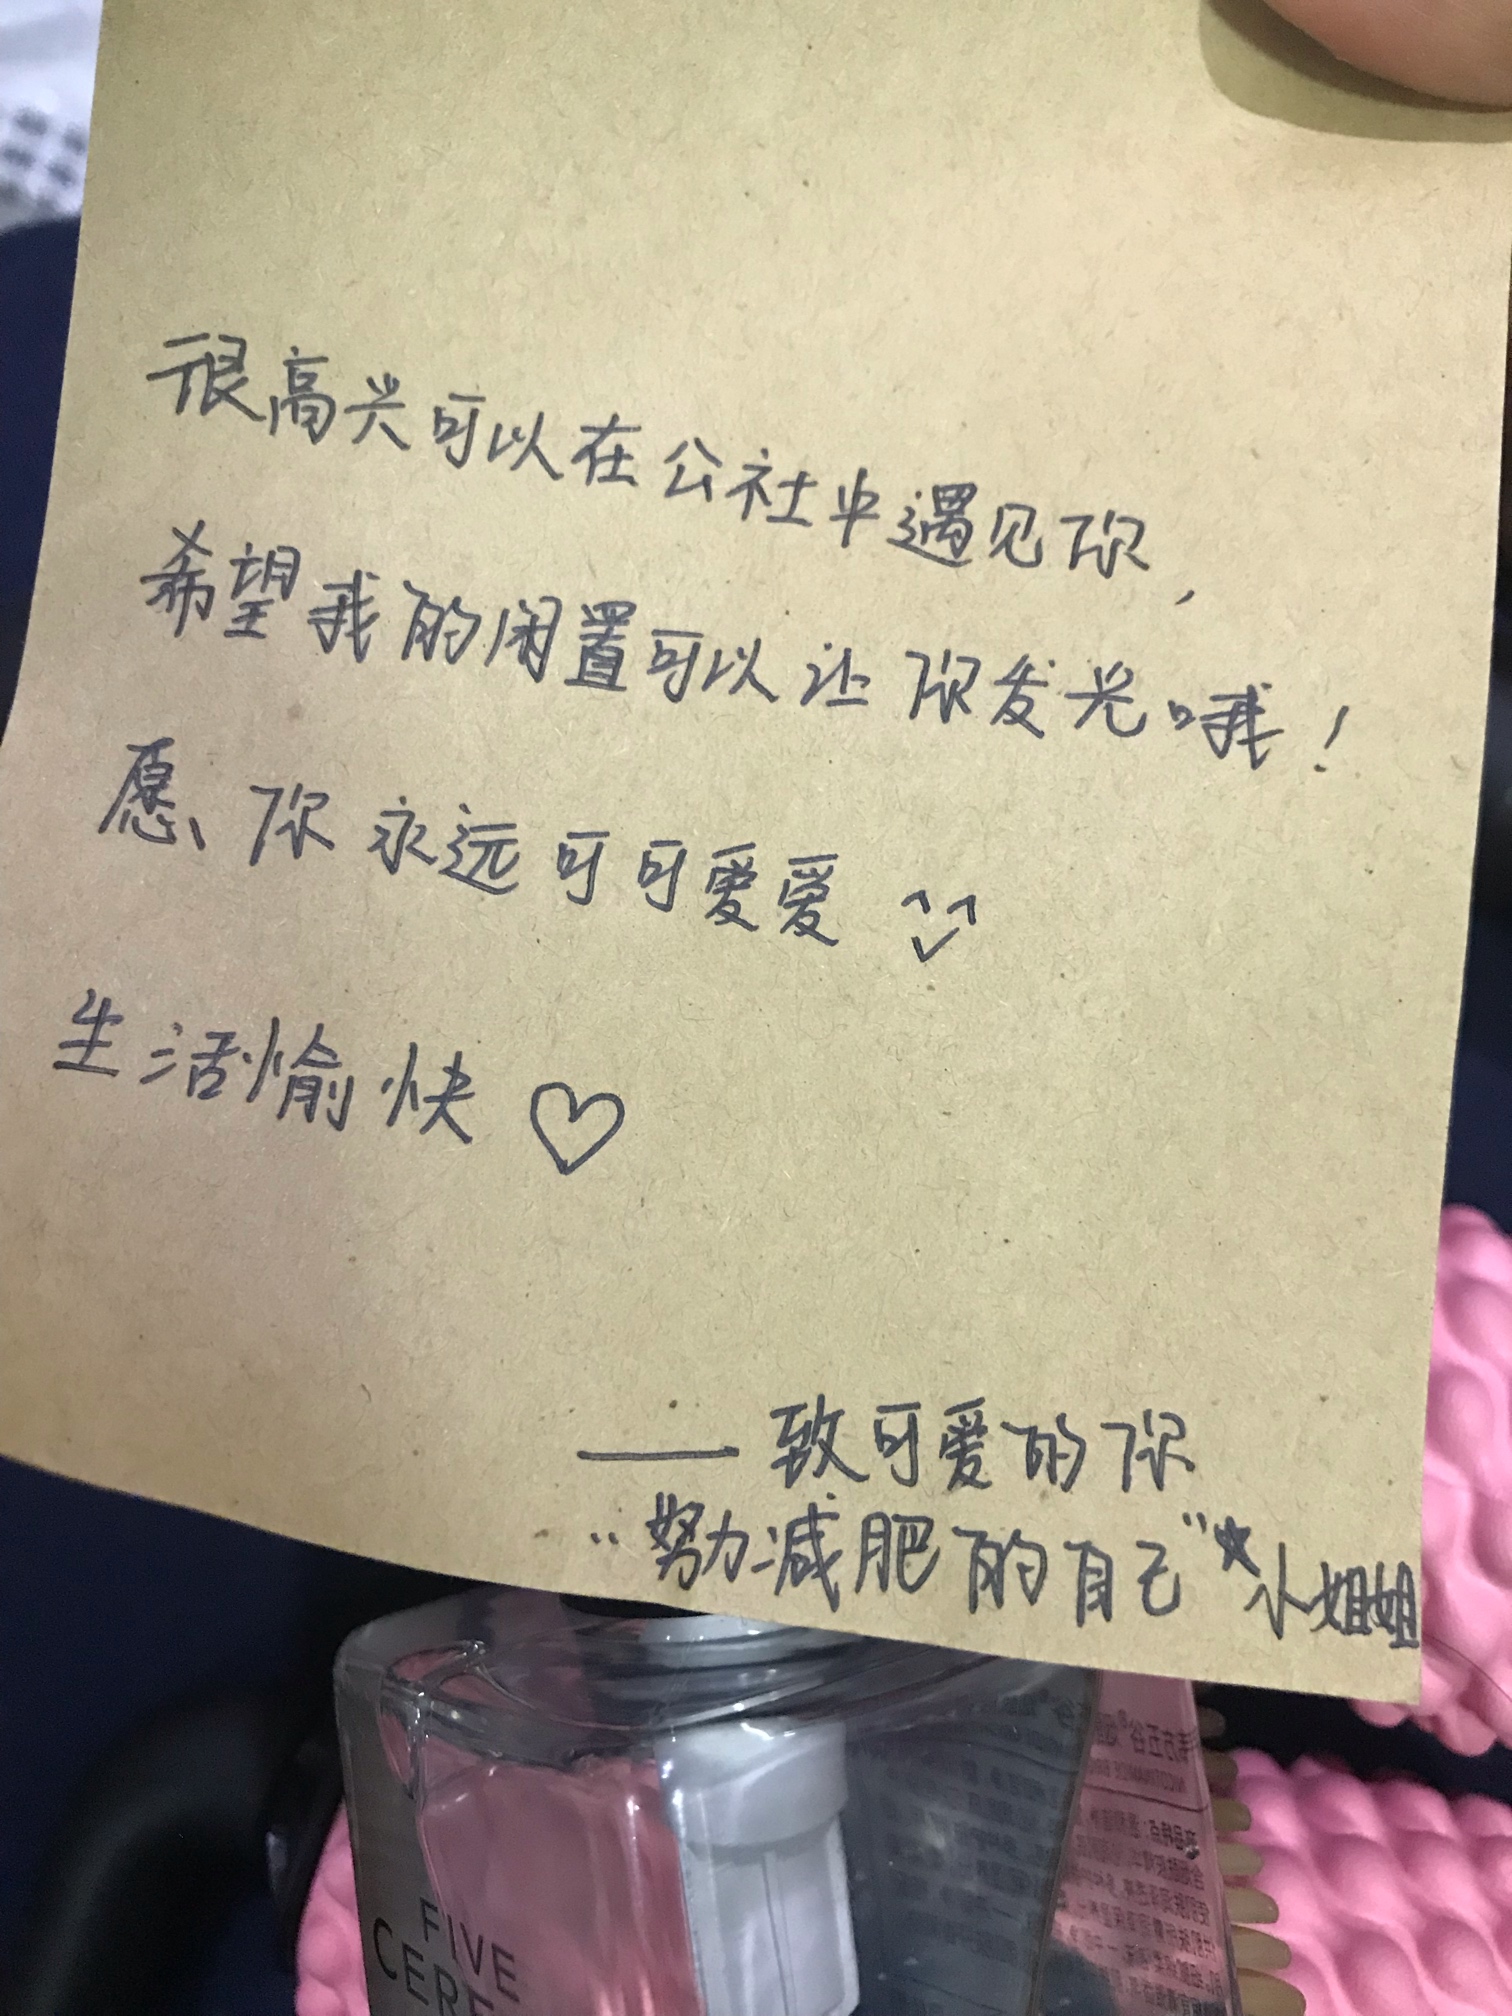 很高兴可以在公社中遇见你，
希望我的闲置可以让你发光哦！
愿你永远可可爱爱
生活愉快♡
——致可爱的你
“努力减肥的自己”★小姐姐
FIVE
CERE